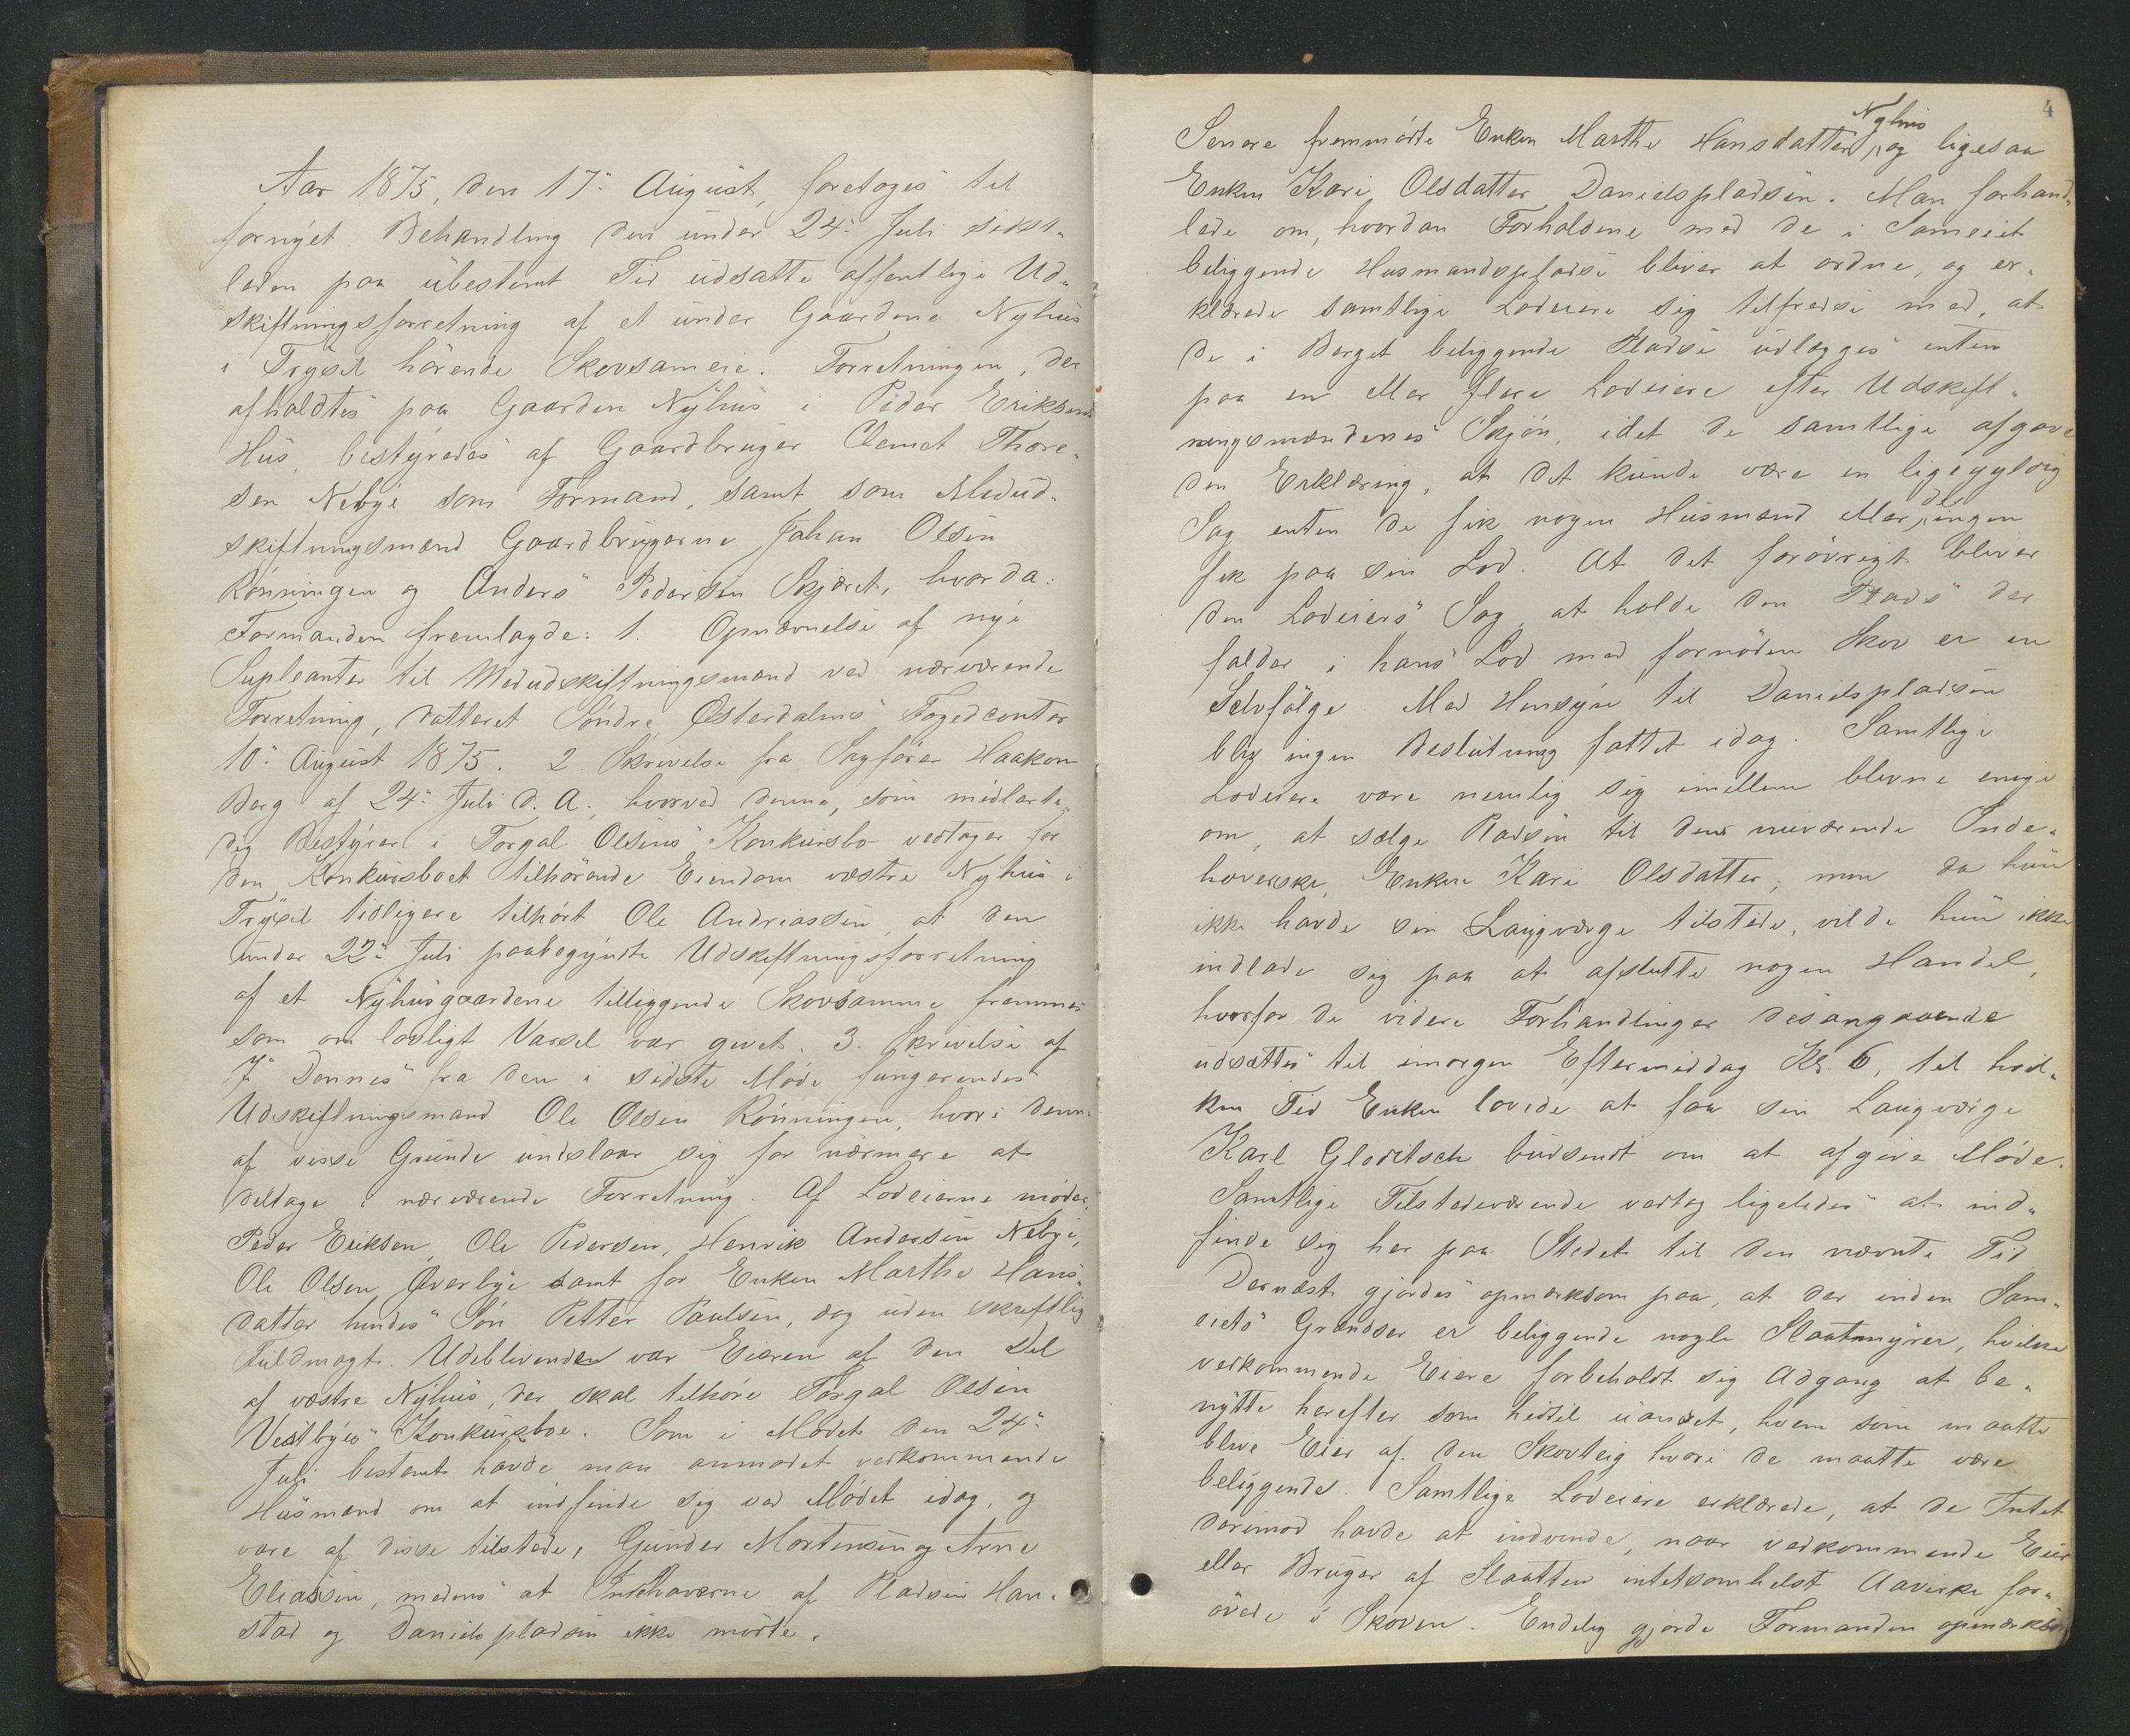 Aar 1875, den 17de August, foretoges til
fornyet Behandling den under 24de Juli sidst-
leden paa ubestemt Tid udsatte offentlige Ud-
skiftningsforretning af et under Gaardene Nyhus
i Trysil hørende Skovsameie. Forretningen, der
afholdtes paa Gaarden Nyhus i Peder Eriksens
Hus, bestyredes af Gaardbruger Clemet Thore-
sen Nebye som Formand, samt som Medud-
skiftningsmænd Gaardbrugerne Johan Olsen
Rønningen og Anders Pedersen Skjæret, hvorda:
Formanden fremlagde: 1. Opnævnelse af nye
Supleanter til Medudskiftningsmænd ved nærværende
Forretning, datteret Søndre Østerdalens Fogedcontor
10de August 1875. 2. Skrivelse fra Sagfører Haakon
Berg af 24de Juli d. A. hvorved denne, som midlerti-
dig Bestyrer i Torgal Olsens Konkursbo vedtager for
den Konkursboet tilhørende Eiendom vestre Nyhus i
Trysil tidligere tilhørt Ole Andriassen, at den
under 22de Juli paabegyndte Udskiftningsforretning
af et Nyhusgaardene tilliggende Skovsamme fremmes
som om lovligt Varsel var givet. 3. Skrivelse af
7de Dennes fra den i sidste Møde fungerende
Udskiftningsmand Ole Olsen Rønningen, hvori denne
af visse Grunde undslaar sig for nærmere at
deltage i nærværende Forretning. Af Lodeierne møder,
Peder Eriksen, Ole Pedersen, Henrik Andersen Nebye,
Ole Olsen Øverbye samt for Enken Marthe Hans-
datter hendes Søn Petter Paulsen, dog uden skriftlig
Fuldmagt. Udeblivende var Eieren af den Del
af vestre Nyhus, der skal tilhøre Torgal Olsen
Vestbyes Konkursboe. Som i Mødet den 24de
Juli bestemt havde man anmodet vedkommende
Husmænd om at indfinde sig ved Mødet idag, og
vare af disse tilstede, Gunder Mortensen og Arne
Eliassen, medens at Indehaverne af Pladsen Han-
stad og Danielspladsen ikke mødte.
4
Nyhus
Senere fremmødte Enken Marthe Hansdatter, og ligesaa
Enken Kari Olsdatter Danielspladsen. Man forhand-
lede om, hvordan Forholdene med de i Sameiet
beliggende Husmandspladse bliver at ordne, og er-
klærede samtlige Lodeiere sig tilfredse med, at
de i Berget beliggende Pladse udlægges enten
paa en eller flere Lodeiere efter Udskift-
ningsmændenes Skjøn, idet de samtlige afgave
den Erklæring, at det kunde være en ligegyldig
Sag enten de fik nogen Husmand eller de ingen
fik paa sin Lod. At det forøvrigt bliver
den Lodeiers Sag, at holde den Plads der
falder i hans Lod med fornøden Skov er en
Selvfølge. Med Hensyn til Danielspladsen
blev ingen Beslutning fattet idag. Samtlige
Lodeiere vare nemlig sig imellem blevne enige
om, at sælge Pladsen til dens nuværende Inde-
haverske, Enken Kari Olsdatter; men da hun
ikke havde sin Laugværge tilstede, vilde hun ikke
indlade sig paa at afslutte nogen Handel,
hvorfor de videre Forhandlinger desangaaende
udsættes til imorgen Eftermiddag Kl. 6, til hvil-
ken Tid Enken lovede at faa sin Laugværge
Karl Gloditsch budsendt om at afgive Møde.
Samtlige Tilstedeværende vedtog ligeledes at ind-
finde sig her paa Stedet til den nævnte Tid
Dernæst gjordes opmærksom paa, at der inden Sam-
eiets Grændser er beliggende nogle Slaatmyrer, hvilke
vedkommende Eiere forbeholdt sig Adgang at be-
nytte herefter som hidtil uanset, hvem som maatte
blive Eier af den Skovteig hvori de maatte være
beliggende. Samtlige Lodeiere erklærede, at de Intet
derimod havde at indvende, naar vedkommende Eier
eller Bruger af Slaatten intetsomhelst Aavirke for-
øvede i Skoven. Endelig gjorde Formanden opmærksom